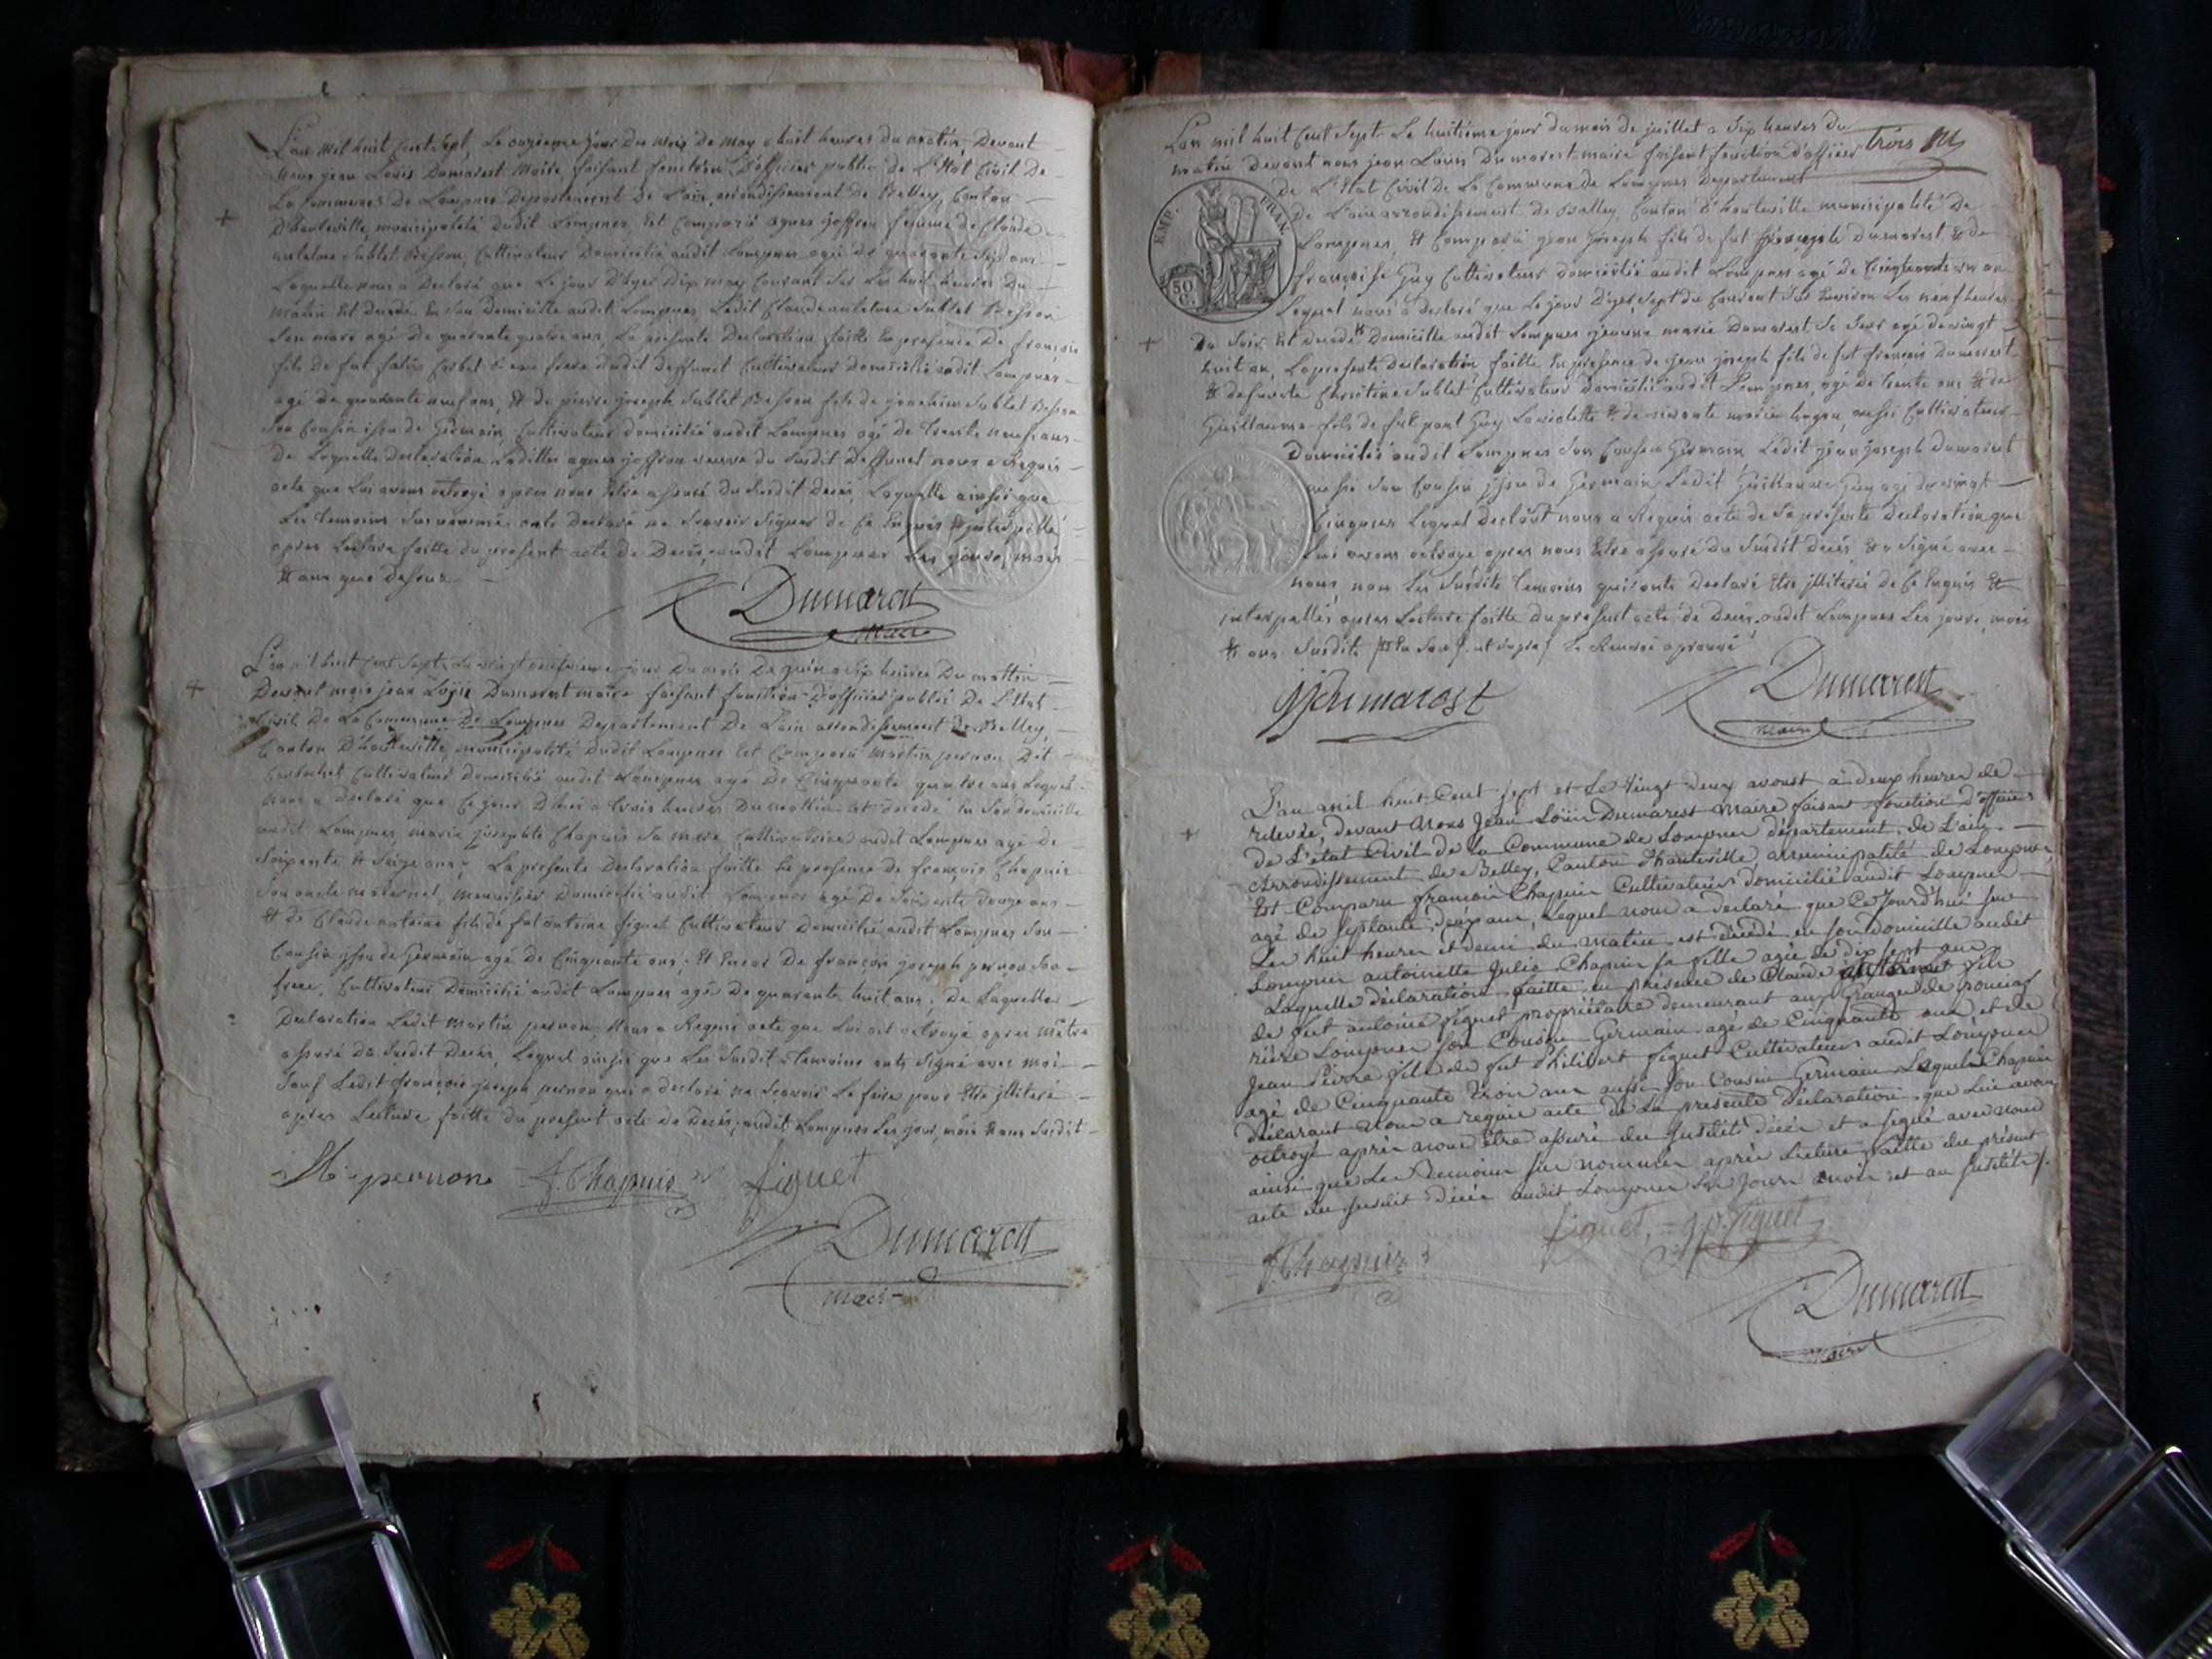 L'an mil huit Cent Sept, Le onzieme jour Du mois De may a huit heures du matin, Devant
Nous jean Louis Dumarest Maire, faisant fonction D'officier public de L'Etat Civil De
La Commune De Lompnes Departement De L'ain, arrondissement de Belley, Canton
D'hauteville, municipalité dudit Lompnes, Est Comparü agnes joffron femme de Claude
antelme Sublet Besson, Cultivateur Domicilié audit Lompnes agé de quarante Six ans
Laquelle nous a Declaré que Le jour D'hyer Dix may Courant Sur Les huit heures Du
matin Est decedé En Son Domicille audit Lompnes Ledit Claude antelme Sublet Besson
Son mary agé De quarante quatre ans, La presente Declaration faitte En presence De françois
fils de fut
agé de quarante neuf ans, Et de pierre joseph Sublet Besson fils de joachim Sublet Besson
Son Cousin issu de Germain Cultivateur domicilié audit Lompnes agé De trente neuf ans
De Laquelle Declaration Laditte agnes joffron veuve du Susdit Deffunct nous a Requis
acte que Lui avons octroyé apres nous Etre assuré du Susdit Decès, Laquelle ainsi que
Les temoins Susnommés ont Declaré ne Scavoir Signer de Ce Enquis Et interpellé
apres Lecture faitte du present acte de Decès, audit Lompnes Les jours, mois
Et ans que dessus
Dumarest
Maire
L'an mil huit Cent Sept, Le vingt neufvieme jour Du mois De juin a Six heures Du mattin
Devant moi jean Louis Dumarest maire faisant fonction D'officier public De L'Etat
Civil De La Commune De Lompnes Departement De L'ain arrondissement De Belley,
Canton D'hauteville, municipalité Dudit Lompnes Est Comparü Martin pernon Dit
Cultivateur domicilié audit Lompnes agé De Cinquante quatre ans Lequel
Nous a Declaré que Ce jour D'hui a trois heures Du mattin Est decedé En Son domicille
audit Lompnes, marie josephte Chapuis Sa mere Cultivatrice audit Lompnes agé De
Soixante Et Seize ans, La presente Declaration faitte En presence de françois Chapuis
Son oncle maternel, Menuisier Domicilié audit Lompnes agé De Soixante douze ans
Et de Claude antoine fils de fut antoine figuet Cultivateur Domicilié audit Lompnes Son
Cousin issu de Germain agé de Cinquante ans; Et Encor De françois joseph pernon Son
frere, Cultivateur Domicilié audit Lompnes agé De quarante huit ans; De Laquelle
Declaration Ledit Martin pernon Nous a Requis acte que Lui ait octroyé apres M'être
assuré du Susdit Decès, Lequel ainsi que Les Susdit temoins ont Signé avec Moi
Sauf Ledit françois joseph pernon qui a declaré ne Scavoir Le faire pour Etre illiteré
apres Lecture faitte du present acte de Decès, audit Lompnes Les jour, mois Et ans Susdit
M. pernon F. Chapuis figuet
Dumarest
Maire
trois
L'an mil huit Cent Sept Le huitieme jour du mois de juillet a Six heures du
matin Devant nous jean Louis Dumarest maire faisant fonction d'officier
de L'Etat Civil de La Commune de Lompnes Departement
EMP. FRAN.
50 C.
de L'ain arrondissement de Belley Canton d'hauteville municipalité De
Lompnes, Est Comparü jean joseph fils de fut Dumarest, Et de
françoise Guy Cultivateur domicilié audit Lompnes agé de Cinquante un an
Lequel nous a declaré que Le jour d'hyer Sept du Courant Sur Environ Les neuf heures
Du Soir Est decedé Domicille audit Lompnes jeanne marie Dumarest Sa Seur agé de vingt
huit an, La presente declaration faitte En presence de jean joseph fils de fut françois Dumarest
Et defuncte Christine Sublet Cultivateur Domicilié audit Lompnes, agé de trente ans, Et de
Guillaume fils de fut Guy Et de vivante marie aussi Cultivateur
Domiciliés audit Lompnes Son Cousin Germain Ledit jean joseph Dumarest
aussi Son Cousin issu de Germain Ledit Guillaume Guy agé de vingt
Cinq ans Lequel Declarant nous a Requis acte de Sa presente declaration que
Lui avons octroyé apres nous Etre assuré du Susdit decès, Et a Signé avec
nous, non Les Susdits temoins qui ont Declaré Etre illiterés de Ce Enquis Et
interpellés apres Lecture faitte du present acte de Decès audit Lompnes Les jours, mois
Et ans Susdits Le Renvoi aprouvé
JJ dumarest
Dumarest
Maire
L'an mil huit Cent sept et Le vingt deux avoust à deux heures de
relevée, devant Nous Jean Loüis Dumarest Maire faisant fonction d'officier
de L'état Civil de La Commune de Lompnes département de L'ain
Arrondissement de Belley, Canton d'hauteville municipalité de Lompnes
Est Comparu françois Chapuis Cultivateur domicilié audit Lompnes
agé de septante deux ans, Lequel nous a déclaré que Ce Jourd'hui sur
Les huit heures et demi du matin est décédé en son Domicille audit
Lompnes antoinette Julie Chapuis sa fille agée de dix sept ans
Laquelle déclaration faitte en présence de Claude antoine fils
de fut antoine figuet propriétaire demeurant aux Granges de
rière Lompnes son Cousin Germain agé de Cinquante ans, et de
Jean Pierre fils de fut Philibert figuet Cultivateur audit Lompnes
agé de Cinquante trois ans aussi son Cousin Germain Lequel Chapuis
déclarant nous a requis acte de sa présente déclaration que Lui avons
octroyé après nous être assuré du susdit décès et a signé avec nous
ainsi que Les Temoins sus nommés après Lecture faitte du présent
acte du susdit décès audit Lompnes Les Jours mois et an susdits
F. Chapuis figuet, J p. figuet
Dumarest
Maire